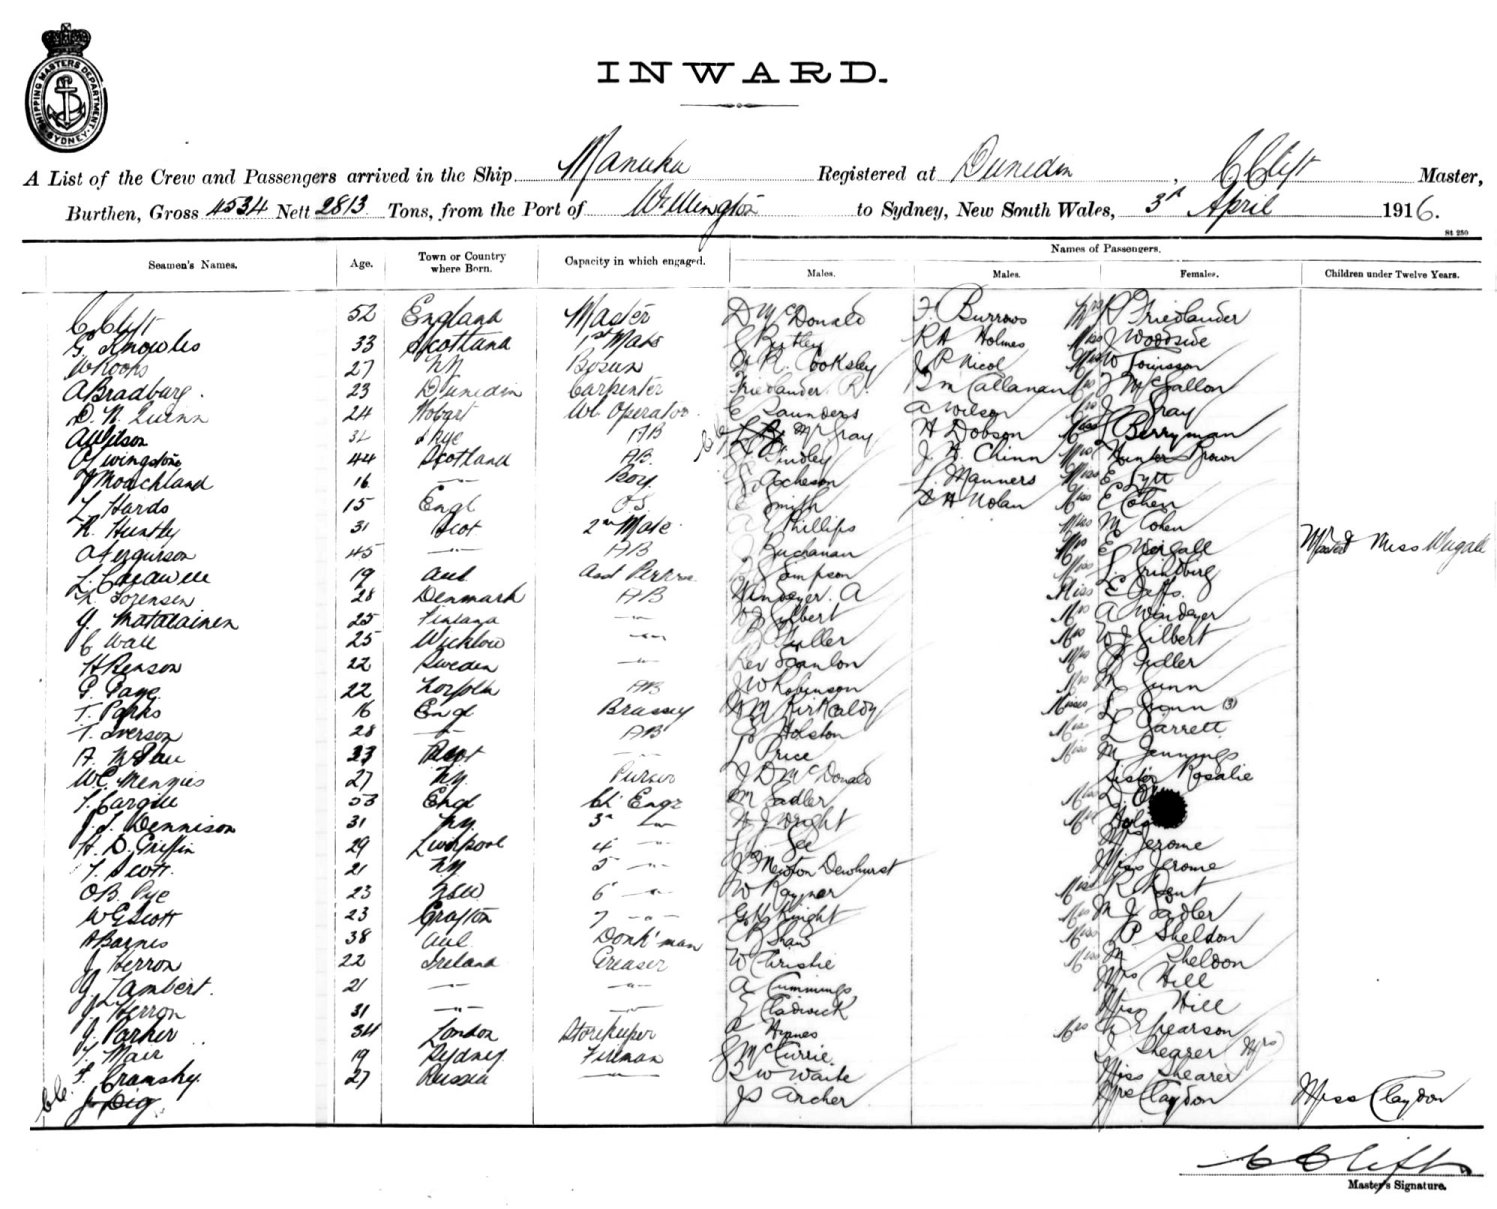 SHIPPING MASTERS DEPARTMENT
SYDNEY
INWARD.
A List of the Crew and Passengers arrived in the Ship Manuka Registered at Dunedin, C Clift Master,
Burthen, Gross 4534 Nett 2813 Tons, from the Port of Wellington to Sydney, New South Wales, 3rd April 1916.
St 250
Seamen's Names. Age. Town or Country where Born. Capacity in which engaged. Names of Passengers.
Males. Males. Females. Children under Twelve Years.
C Clift 52 England Master D McDonald F Burrows Mrs R Friedlander
G. Knowles 33 Scotland 1st Mate Bentley RA Holmes Miss J Woodside
27 NZ Bosun R. Cooksley J P Nicol Miss W
A Bradburg. 23 Dunedin Carpenter Friedlander. R. Callanan J McCallon
D. N. Quinn 24 Hobart W. Operator E Saunders A Wilson Gray
A Wilson 32 Skye AB Gray H Dobson Miss Berryman
44 Scotland AB. Findley J. A. Chinn Mrs Hunter Brown
16 -"- Boy Acheson Manners Miss E Tytt
L Hards 15 Engl OS E Smith S A Nolan E Cohen
R. Huntly 31 Scot 2nd Mate A Phillips Miss M Cohen
A Ferguson 45 -"- AB J Buchanan Mrs E Master & Miss
19 Aus Asst J Simpson Miss L. Goldberg
Sorensen 28 Denmark AB Windeyer. A Miss E Jaffs.
J. Matalainen 25 Finland -"- W J Gilbert Mrs A Windeyer
C Wall 25 Wicklow -"- Mrs W J Gilbert
H Renson 22 Sweden -"- Rev Scanlon Mrs
P. Page. 22 Norfolk AB J W Robinson Mrs M Gunn
T. Parks 16 Engl Brassey M Kirkaldy Misses Gunn (3)
T. Iverson 28 -"- AB Holston Miss L Garrett
A. 23 Scot -"- Price Miss M Jennings
W.C. Menzies 27 NZ. Purser J D McDonald Sister Rosalie
J. Cargill 53 Engl Ch. Engr M Sadler Miss
J. J. Dennison 31 NZ. 3rd -"- A J Wright
H. D. Griffin 29 Liverpool 4 -"- Gee Mrs Jerome
J. Scott 21 NZ 5 -"- J Newton Dewhurst Miss Jerome
OB. Pye 23 NSW 6 -"- W Rayner Miss R Kent
W G Scott 23 Grafton 7 -"- G.H. Knight Mrs M J Sadler
A Barnes 38 Aus. Donk'man C B Shaw Miss P Sheldon
J Herron 22 Ireland Greaser W Christie Miss M Sheldon
J. Lambert. 21 -"- -"- A Cummings Mrs Hill
J Herron 31 -"- -"- Chadwick Miss Hill
J. Parker 34 London Storekeeper A Hynes Mrs Shearson
J. Mair 19 Sydney. Fireman J McCurrie J Shearer Mrs
F. Cramsky. 27 Russia -"- W Waite Miss Shearer
J Dig. J S Archer Mrs Claydon Miss Claydon
C Clift
Master's Signature.